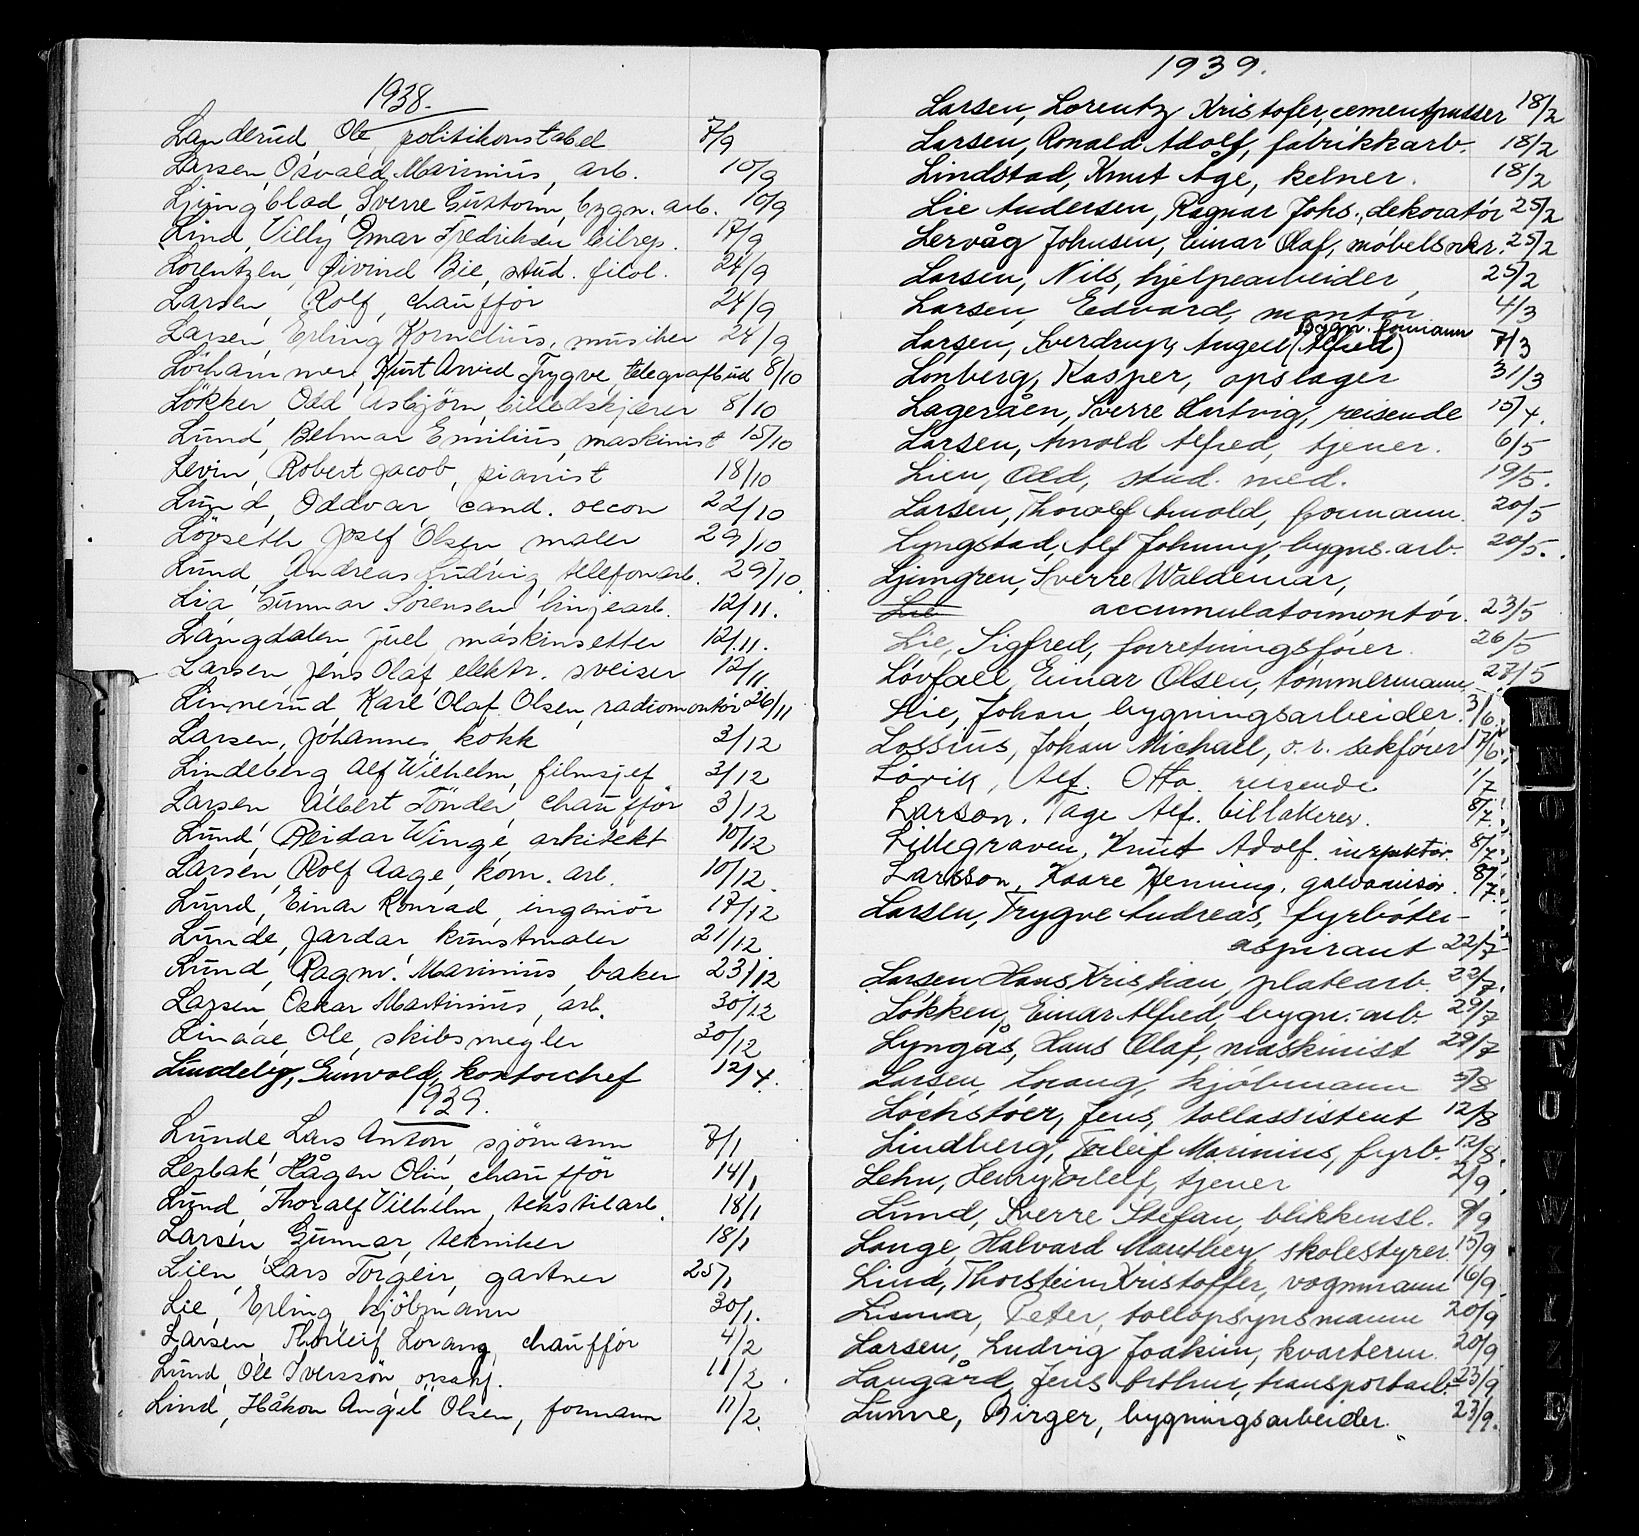 1938.
Landerud, Ole politikonstabel 7/9
Larsen, Osvald Marinius, arb. 10/9
Ljungblad, Sverre Gustorm, bygn. arb. 10/9
Lind, Villy Omar Fredriksen bilrep. 17/9
Lorentzen, Øivind Bie, stud. filol. 24/9
Larsen, Rolf, chauffør 24/9
Larsen, Erling Kornelius, musiker 24/9
Kurt Arvid Trygve, telegrafbud 8/10
Løkker, Odd Asbjörn, billedskjærer 8/10
Lund, Belmar Emilius, maskinist 15/10
Levin, Robert Jacob, pianist 18/10
Lund, Oddvar, cand. oecon 22/10
Lövseth Josef Olsen, maler 29/10
Lund, Andreas Ludvig telefonarb. 29/10.
Lia Gunnar Sørensen linjearb. 12/11.
Langdalen, Juel, maskinsetter 12/11.
Larsen, Jens Olaf, elektr. sveiser 12/11
Linnerud Karl Olaf Olsen, radiomontör 26/11
Larsen, Johannes, kokk 3/12
Lindeberg, Alf Wilhelm, filmsjef 3/12
Larsen, Albert Tönder, chauffør 3/12
Lund, Reidar Winge, arkitekt 10/12
Larsen, Rolf Aage, kom. arb. 10/12.
Lund, Einar Konrad, ingeniör 17/12
Lunde, Jardar, kunstmaler 21/12
Lund, Ragnv. Marinius, baker 23/12
Larsen, Oskar Martinius, arb. 30/12
Linaae, Ole, skibsmegler 30/12
Gunvald, kontorchef 12/4.
1939.
Lunde, Lars Anton, sjömann 7/1
Lerbak, Hågen Olin, chauffør 14/1
Lund, Thoralf Vilhelm, tekstilarb. 18/1
Larsen, Gunnar, tekniker 18/1
Lien, Lars Torgeir, gartner 25/1
Lie, Erling, kjöbmann 30/1.
Larsen, Thorleif Lorang, chauffør 4/2
Lund, Ole Iversson, 11/2.
Lind, Håkon Angel Olsen, formann 11/2.
1939.
Larsen, Lorentz Kristofer, cementpusser 18/2
Larsen, Ronald Adolf, fabrikkarb. 18/2
Lindstad, Knut Åge, kelner. 18/2
Lie Andersen, Ragnar Johs., dekoratör 25/2
Lervåg Johnsen, Einar Olaf, møbelsnkr. 25/2
Larsen, Nils, hjelpearbeider, 25/2
Larsen, Edvard, montör 4/3
Bygn. formann
Larsen, Sverdrup, Angell (Alfred) 7/3
Lonberg, Kasper, opslager 31/3
Lageråen, Sverre Hartvig, reisende 15/4.
Larsen, Arnold Alfred, tjener. 6/5
Lien, Odd, stud. med. 19/5.
Larsen, Thoralf Arnold, formann. 20/5
Lyngstad, Alf Johnny, bygns. arb. 20/5.
Ljungren, Sverre Waldemar,
Lie accumulatormontör. 23/5
Lie, Sigfred, forretningsfører. 26/5
Løvfall, Einar Olsen, tømmermann, 27/5
Lie, Johan, bygningsarbeider. 3/6.
Lossius, Johan Michael, o. r. sakfører 17/6.
Lövik, Alf. Otto. reisende 1/7
Larson. Tage Alf. billakerer. 8/7.
Lillegraven, Knut Adolf. inspektør. 8/7.
Larsson, Kaare Henning, galvanisør. 8/7.
Larsen, Trygve Andreas, fyrbøter-
aspirant 22/7
Larsen Hans Kristian, platearb. 22/7.
Løkken, Einar Alfred, bygn. arb. 29/7
Lyngås, Hans Olaf, maskinist 29/7
Larsen, Lorang, kjøbmann 5/8
Løchstøer, Jens, tollassistent 12/8
Lindberg, Torleif Marinius, fyrb. 12/8.
Lehn, Henry Torleif, tjener 2/9.
Lund, Sverre Stefan, blikkensl. 9/9
Lange, Halvard Manthey, skolestyrer 15/9
Lind, Thorstein Kristoffer, vognmann 16/9.
Lisma, Peter, tollopsynsmann 20/9
Larsen, Ludvig Joakim, kvarterm. 20/9.
Langård, Jens Arthur, transportarb. 23/9.
Lunne, Birger, bygningsarbeider. 23/9.
M
N
O
P
T
U
V
W
Z